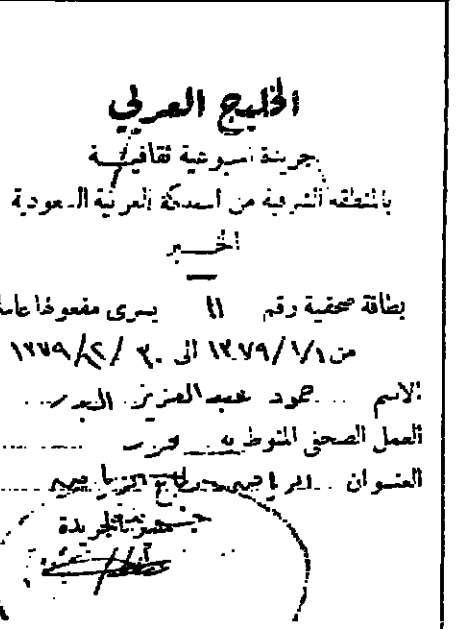 الخليج العربي
جريدة اسبوعية ثقافيـــة
بالمنطقه الشرقية من المملكة العربية السعودية
الخـــبر
بطاقة صحفية رقم ١١ يسرى مفعولها عاما
من ١/١/١٣٧٩ الى ٣٠/١٢/١٣٧٩
الاسم حمود عبد العزيز البدر
العمل الصحفي المنوط به محرر
العنـوان الرياض
الجريدة